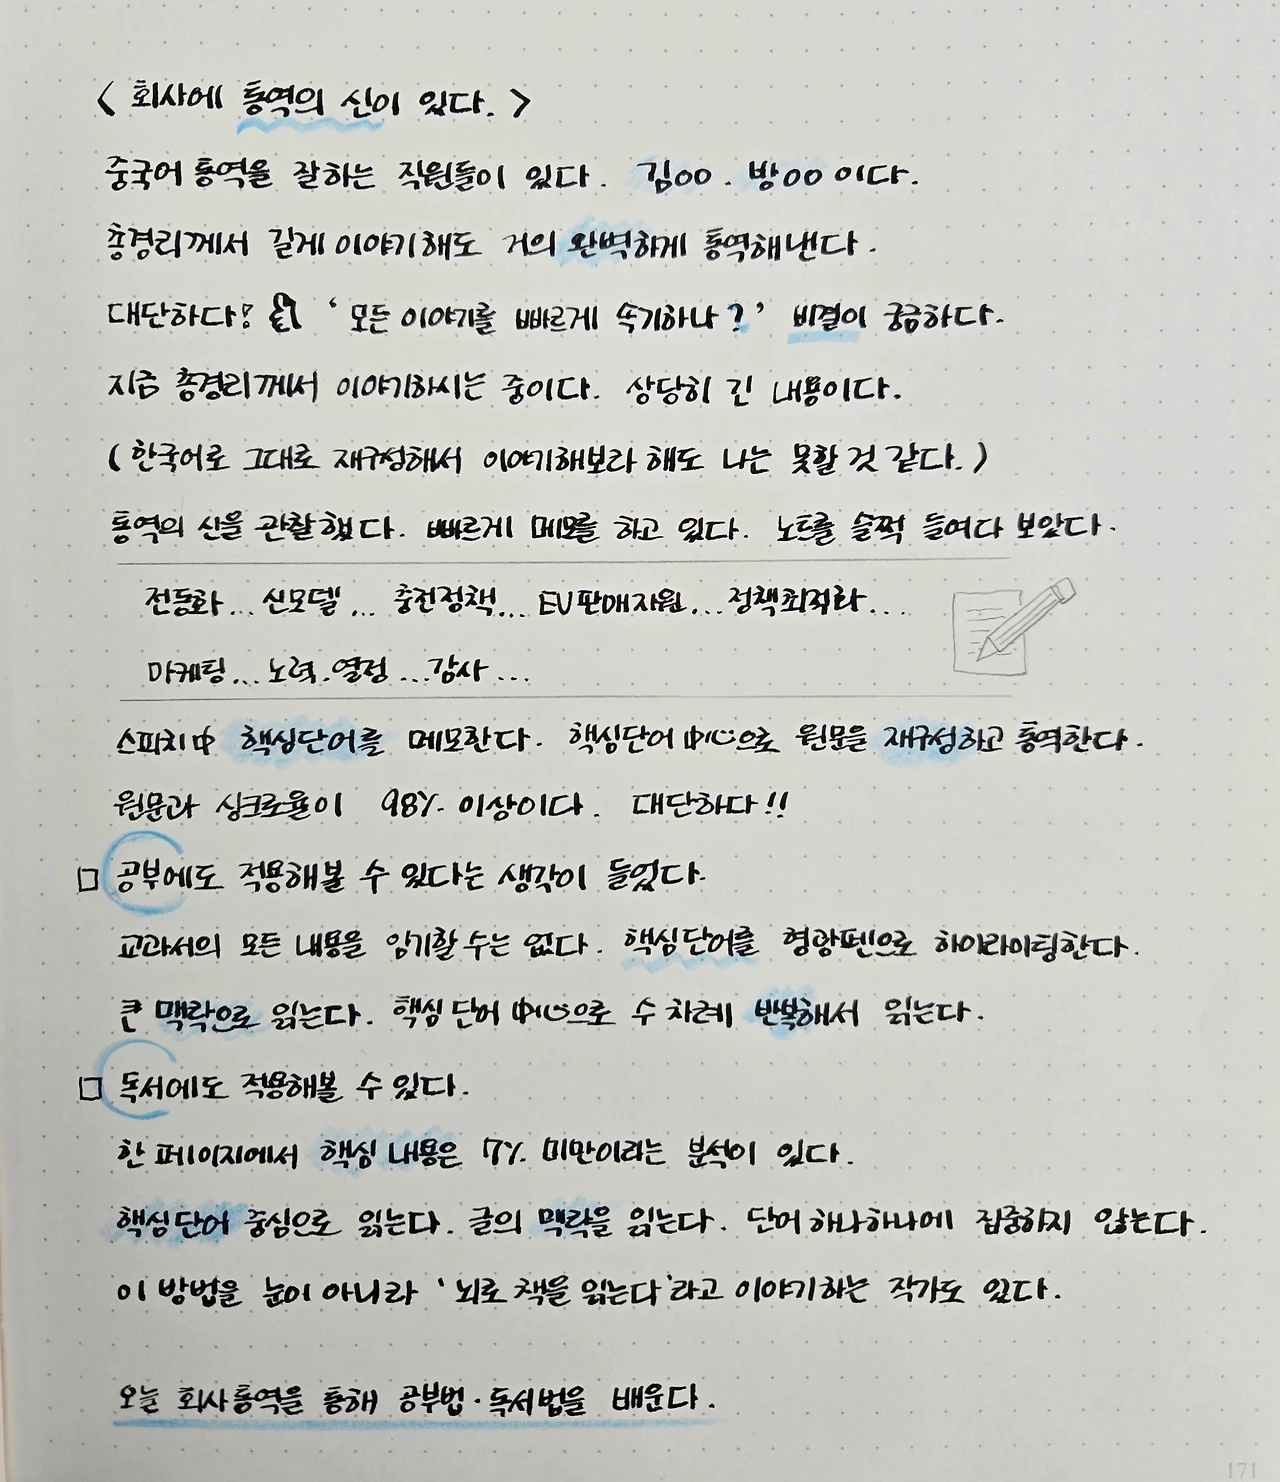 < 회사에 통역의 신이 있다. >
중국어 통역을 잘하는 직원들이 있다. 김OO. 방OO 이다.
총경리께서 길게 이야기해도 거의 완벽하게 통역해낸다.
대단하다! '모든 이야기를 빠르게 속기하나?' 비결이 궁금하다.
지금 총경리께서 이야기하시는 중이다. 상당히 긴 내용이다.
(한국어로 그대로 재구성해서 이야기해보라 해도 나는 못할 것 같다.)
통역의 신을 관찰했다. 빠르게 메모를 하고 있다. 노트를 슬쩍 들여다 보았다.
전동화... 신모델... 충전정책... EV판매자원... 정책최적화...
마케팅... 노력.열정... 감사...
스피치中 핵심단어를 메모한다. 핵심단어 中心으로 원문을 재구성하고 통역한다.
원문과 싱크로율이 98% 이상이다. 대단하다!!
□ 공부에도 적용해볼 수 있다는 생각이 들었다.
교과서의 모든 내용을 암기할 수는 없다. 핵심단어를 형광펜으로 하이라이팅한다.
큰 맥락으로 읽는다. 핵심 단어 中心으로 수 차례 반복해서 읽는다.
□ 독서에도 적용해볼 수 있다.
한 페이지에서 핵심 내용은 7% 미만이라는 분석이 있다.
핵심단어 중심으로 읽는다. 글의 맥락을 읽는다. 단어 하나하나에 집중하지 않는다.
이 방법을 눈이 아니라 '뇌로 책을 읽는다'라고 이야기하는 작가도 있다.
오늘 회사통역을 통해 공부법·독서법을 배운다.
171